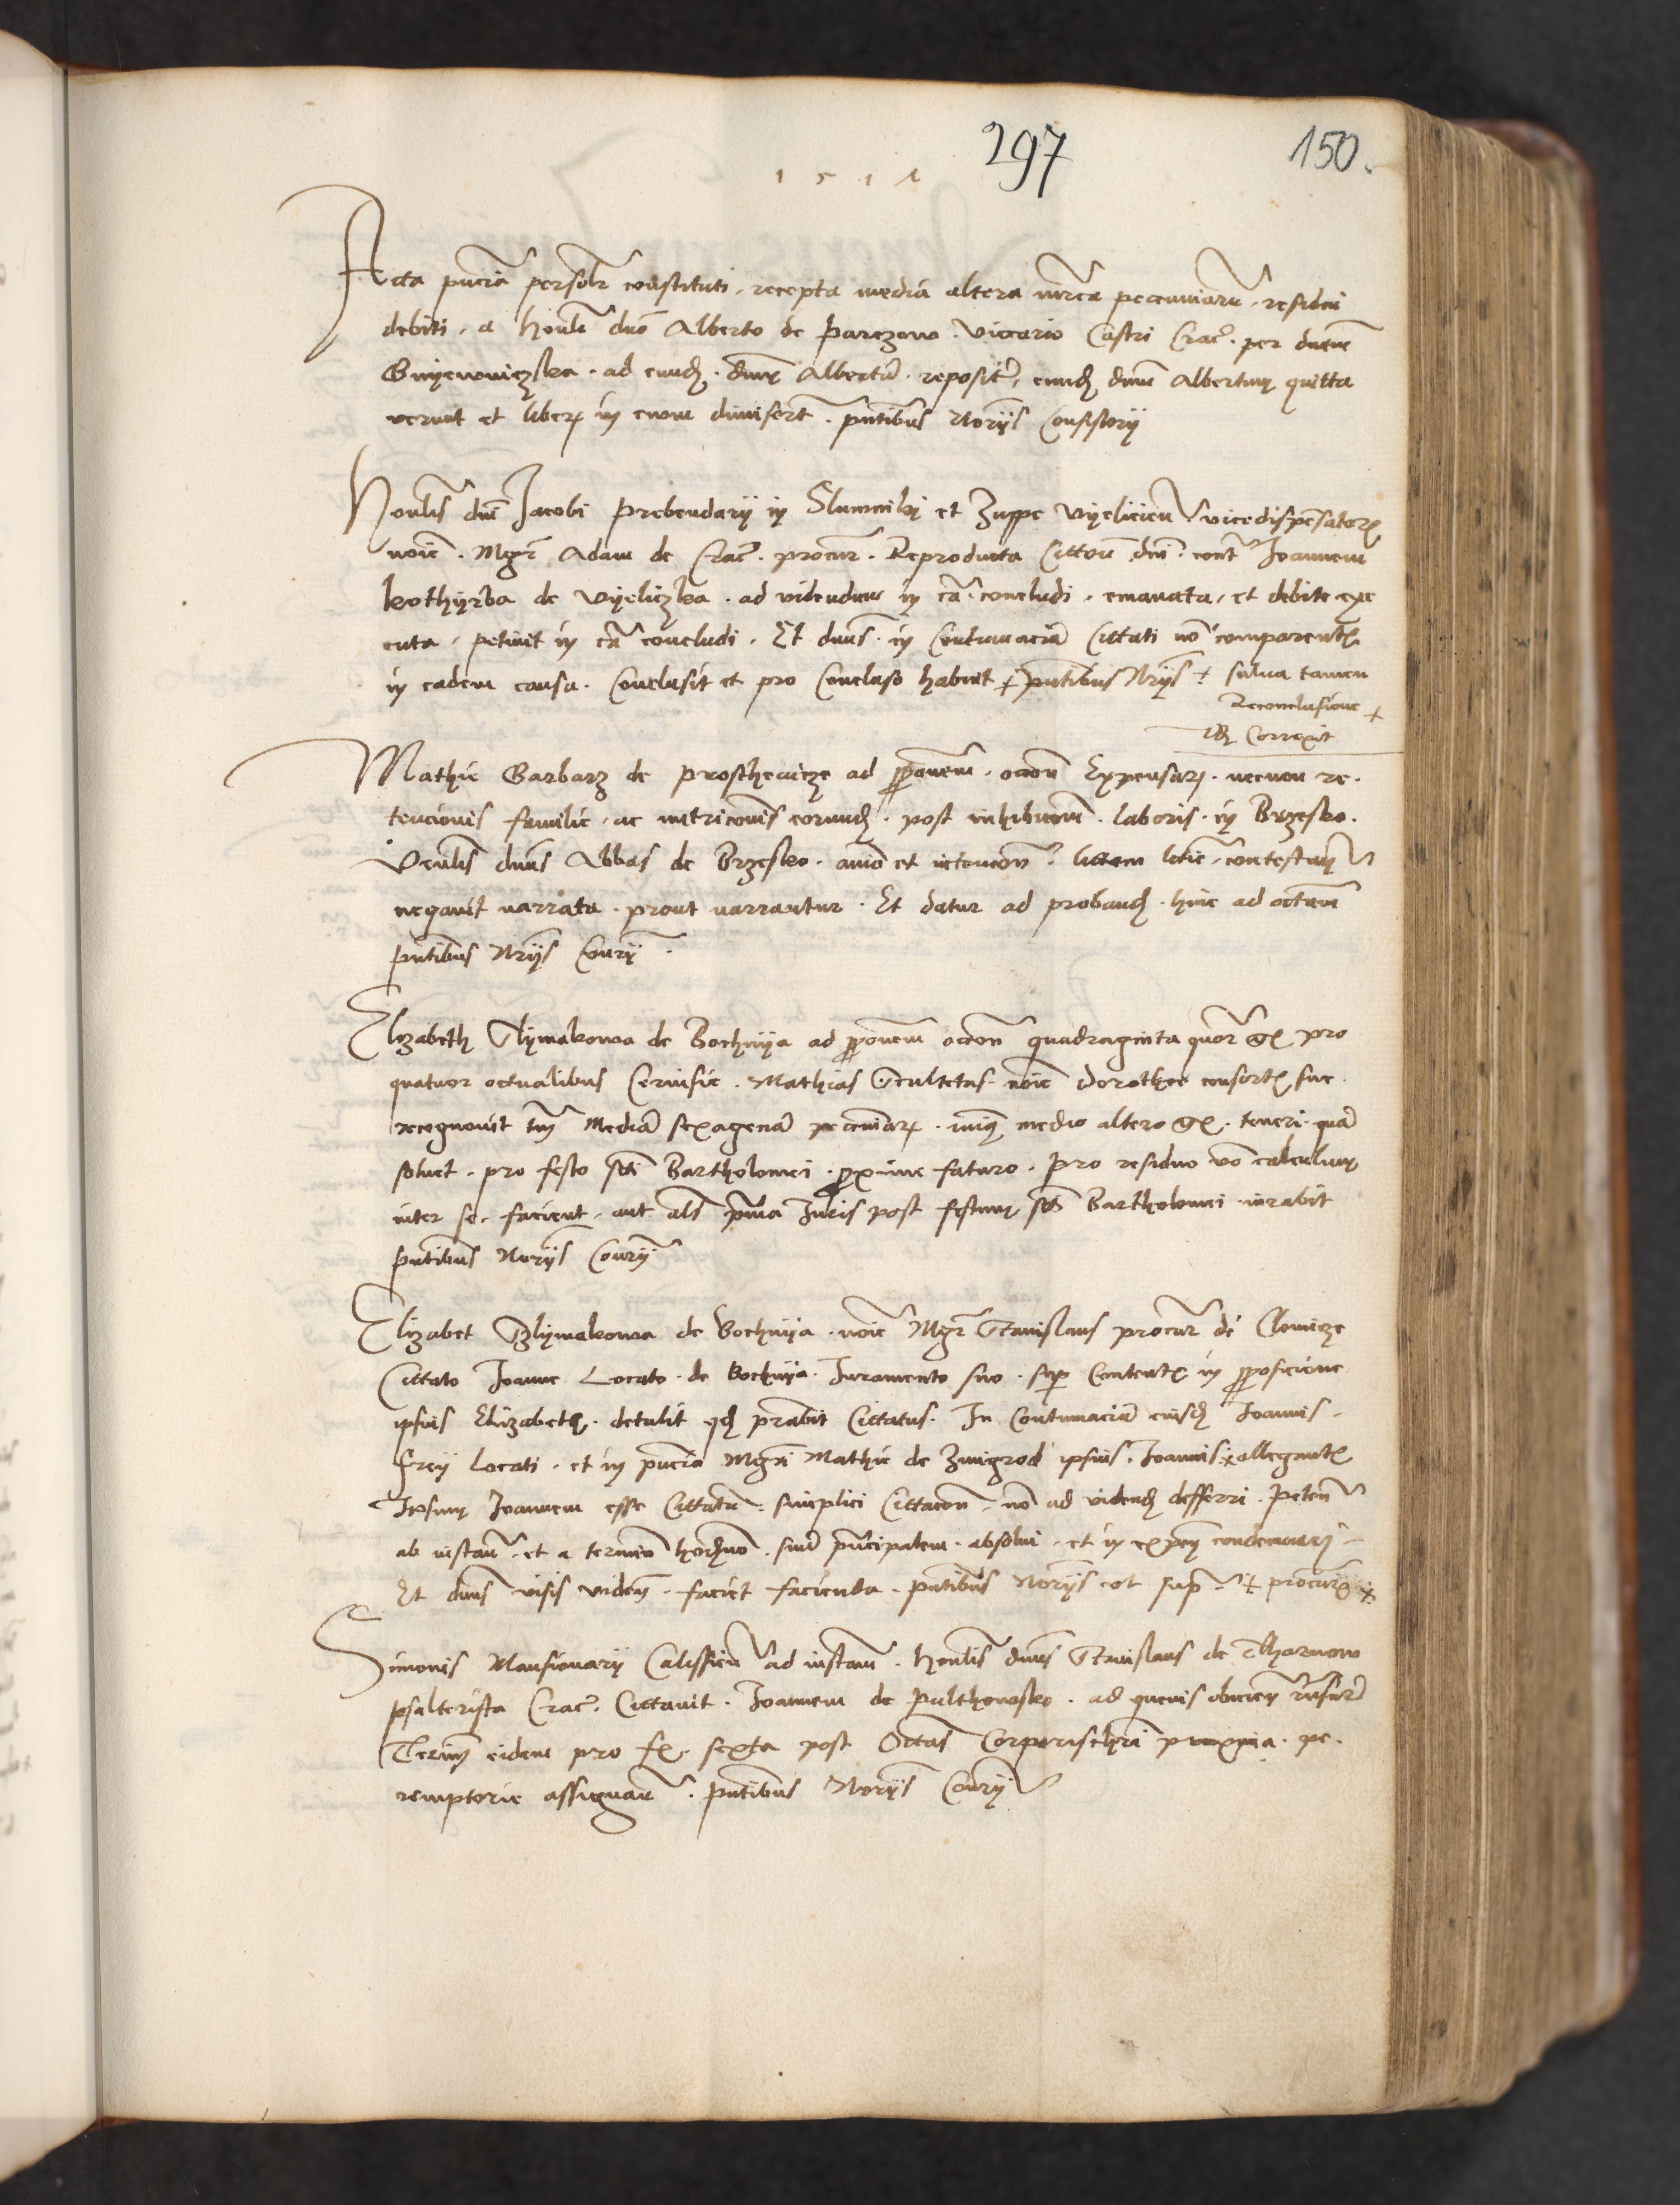 297
150.
1511
Acta pncia persolr constituti. recepta media altera mrca peccuniaru. residui
debiti. a honli dno Alberto de Parczow. vicario Castri Crac. per dnem
Gnyewniczska. ad eund. dnm Albertu. repositis, eund dnm Albertum quitta
verunt et liberu in evum dimisert. pntibus Noriis Consistorij
Honlis dni Jacobi prebendarij in Slumniki et Zuppe Vyelicien vicedispensatoris
noie. Mgr Adam de Crac. procur. Reproducta Cittone dni. contra Joannem
kothyrba de Vyeliczka. ad videndum in ca. concludi. emanata. et debite exe
cuta. petivit in ca concludi. Et dnus. in Contumacia Cittati no comparentis
in eadem causa. Conclusit et pro Concluso habuit + pntibus Nriis + salua tamen
Reconclusione +
Correxit
Mathie Garbarz de Proschewicze ad proponem. accon Expensaru. necnon re.
tencionis familie. ac nutriconis eorund. post inhibicnem. laboris. in Brzesko.
Venlis dnus Abbas de Brzesko. animo et intencone. littem litis contestun
negavit narrata. prout narrantur. Et datur ad proband. hinc ad octavam
pntibus Nriis Conrij.
Elizabeth Slymakowa de Bochnya ad proponem accon quadraginta quor gr pro
quatuor octualibus Cervisie. Mathias Scultetus. noie dorothee consortis sue.
recognovit tm Media sexagena peccuniaru. minus medio altero gr. teneri. qua
solvet. pro festo sti Bartholomei. proxime futuro. Pro residuo vo calculum
inter se. facient. aut als pma Juris post festum sti Bartholomei iurabit
pntibus Noriis Conrij
Elizabet Szlymakowa de Bochnya. noie Mgr Stanislaus procur de Clowicze
Cittato Joanne Locato. de Bochnya. Juramento suo. sup Contentis in proposicione
ipsius Elizabeth. detulit qd prabit Cittatus. In Contumacia eiusd Joannis.
frey locati. et in pncia Mgri Mathie de Zmigrod ipsius. Joannis x allegantis
Ipsum Joannem esse Cittatu. simplici Cittacone. no ad vidend defferri. Peten
ab instan. et a termino hodierno. sine pncipalem. absolui. et in expen condemnari
Et dnus visis viden. faciet facienda. pntibus Noriis cot sup. + procuris x
Simonis Mansionarij Calissien ad instan. honlis dnus Stanislaus de Tharnow
psalterista Crac. Cittavit. Joannem de Pulthowsko. ad quevis obicien
Termin eidem pro fr. sexta post Octas Corporischri proxima. pe.
remptorie assignan. pntibus Noriis Conrij